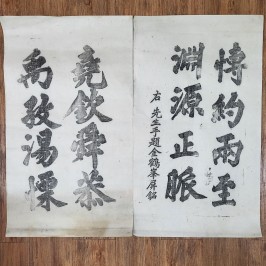 博約兩至
淵源正脈
右 先生手題金鶴峯屏銘
堯欽舜恭
禹孜湯慄